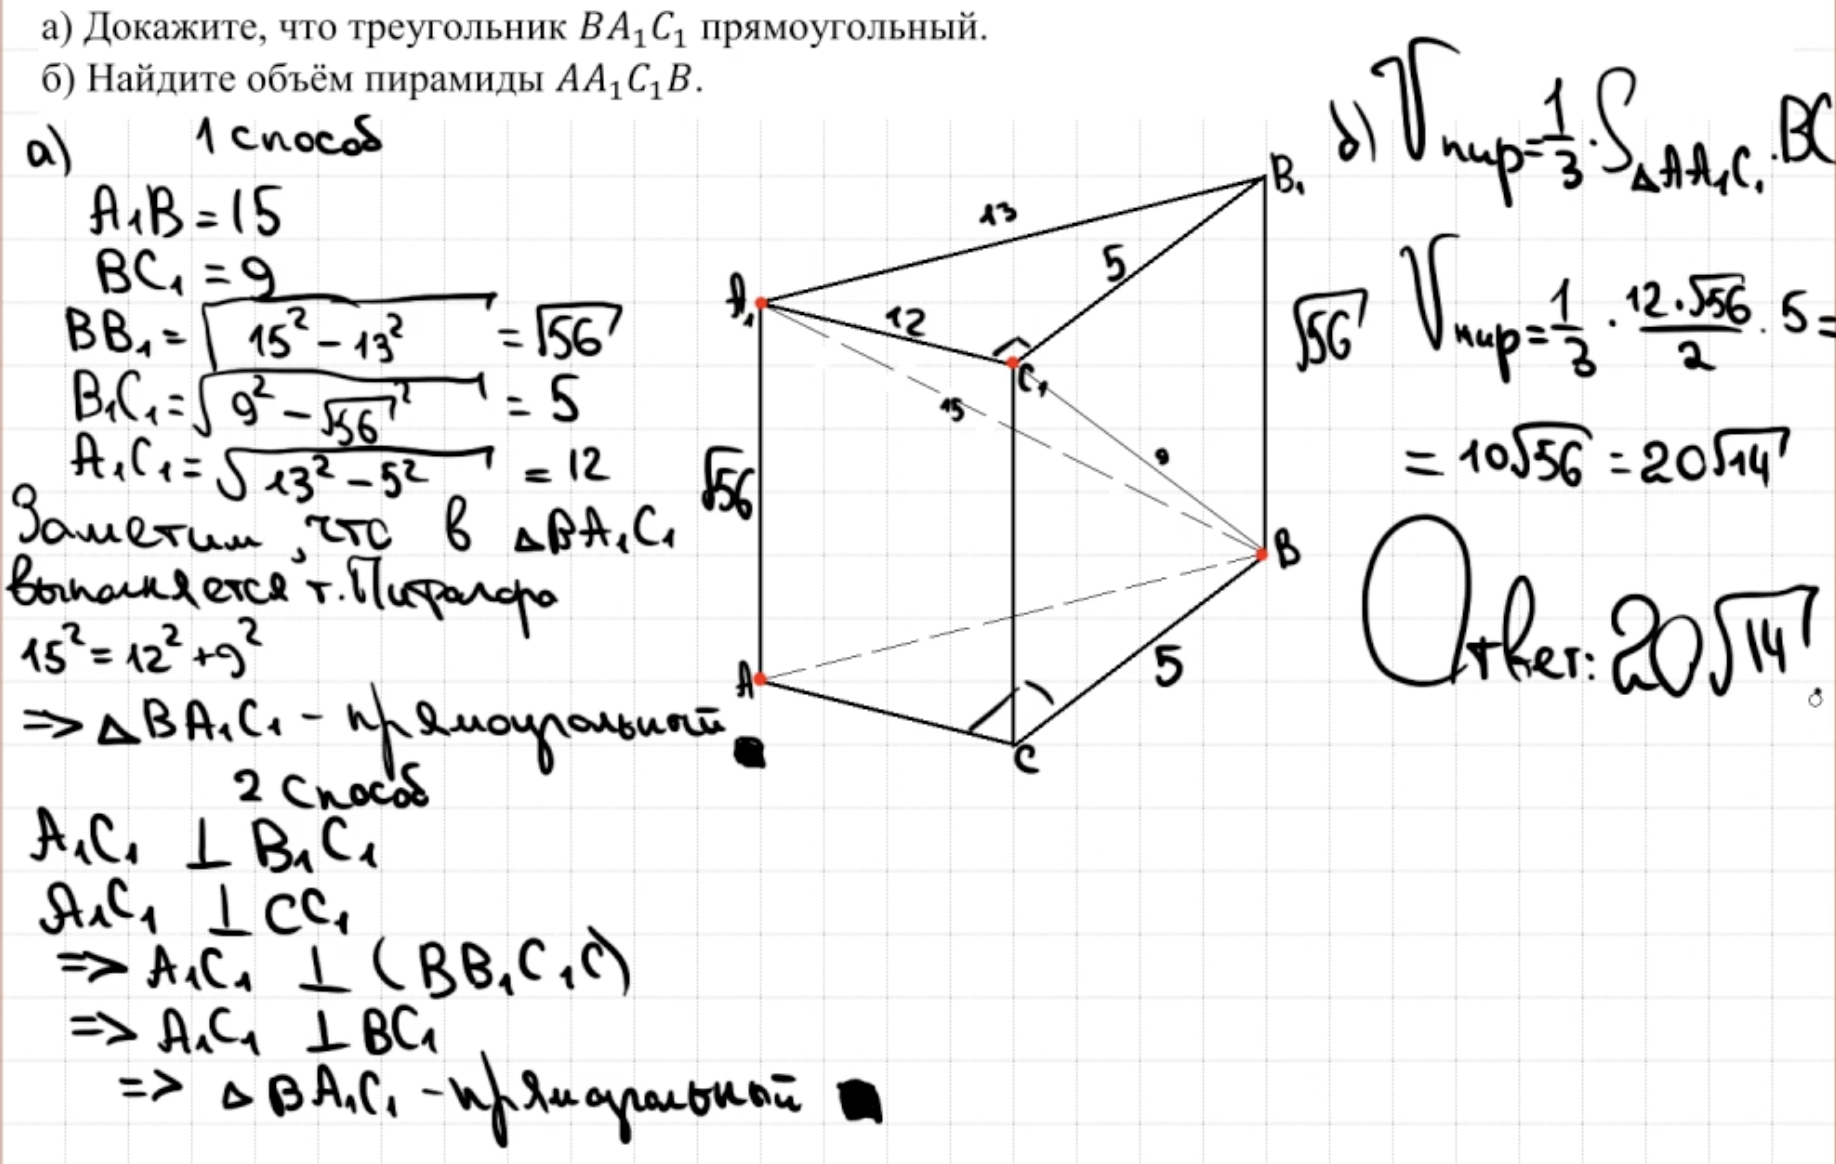 а) Докажите, что треугольник BA₁C₁ прямоугольный.
б) Найдите объём пирамиды AA₁C₁B.
а) 1 способ
A₁B = 15
BC₁ = 9
BB₁ = √(15² - 13²) = √56
B₁C₁ = √(9² - √56²) = 5
A₁C₁ = √(13² - 5²) = 12
Заметим, что в △BA₁C₁
выполняется т. Пифагора
15² = 12² + 9²
=> △BA₁C₁ - прямоугольный
2 способ
A₁C₁ ⊥ B₁C₁
A₁C₁ ⊥ CC₁
=> A₁C₁ ⊥ (BB₁C₁C)
=> A₁C₁ ⊥ BC₁
=> △BA₁C₁ - прямоугольный
B₁
13
5
A₁
12
C₁
√56
15
9
√56
B
A
5
C
б) Vпир = 1/3 · S△AA₁C₁ · BC
Vпир = 1/3 · (12 · √56)/2 · 5 =
= 10√56 = 20√14
Ответ: 20√14